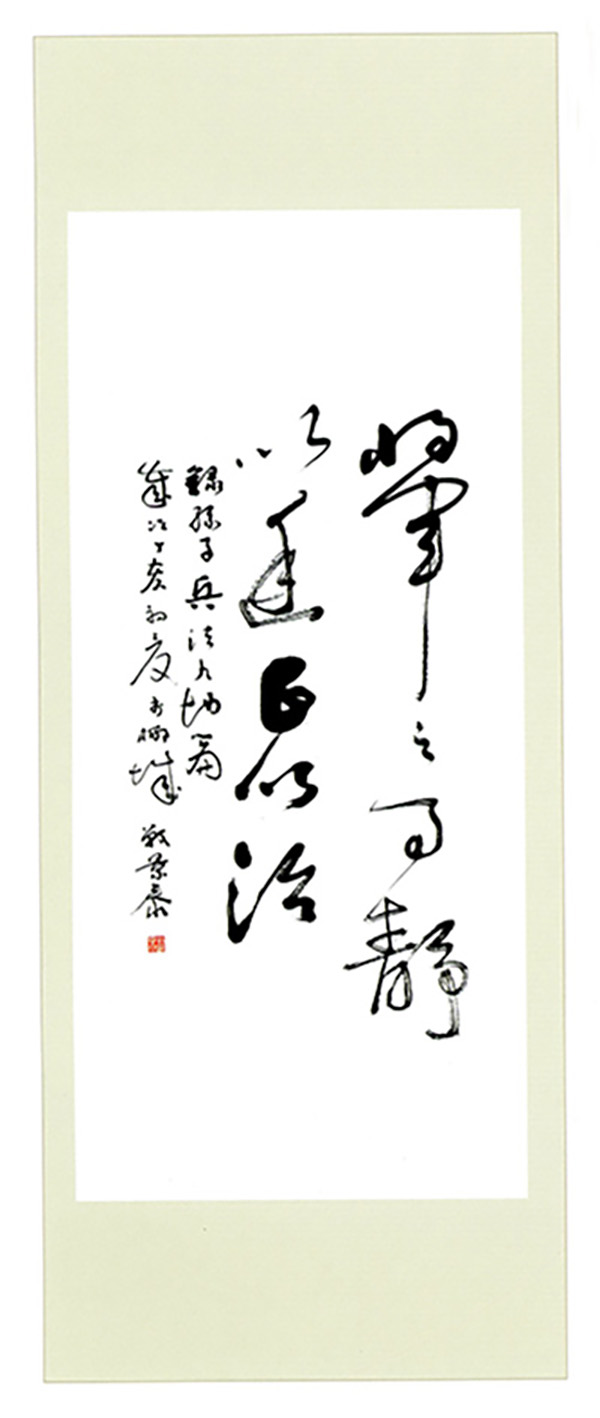 將軍之事靜
以正以治
錄孫子兵法九地篇
歲次丁亥初夏於城 景泰